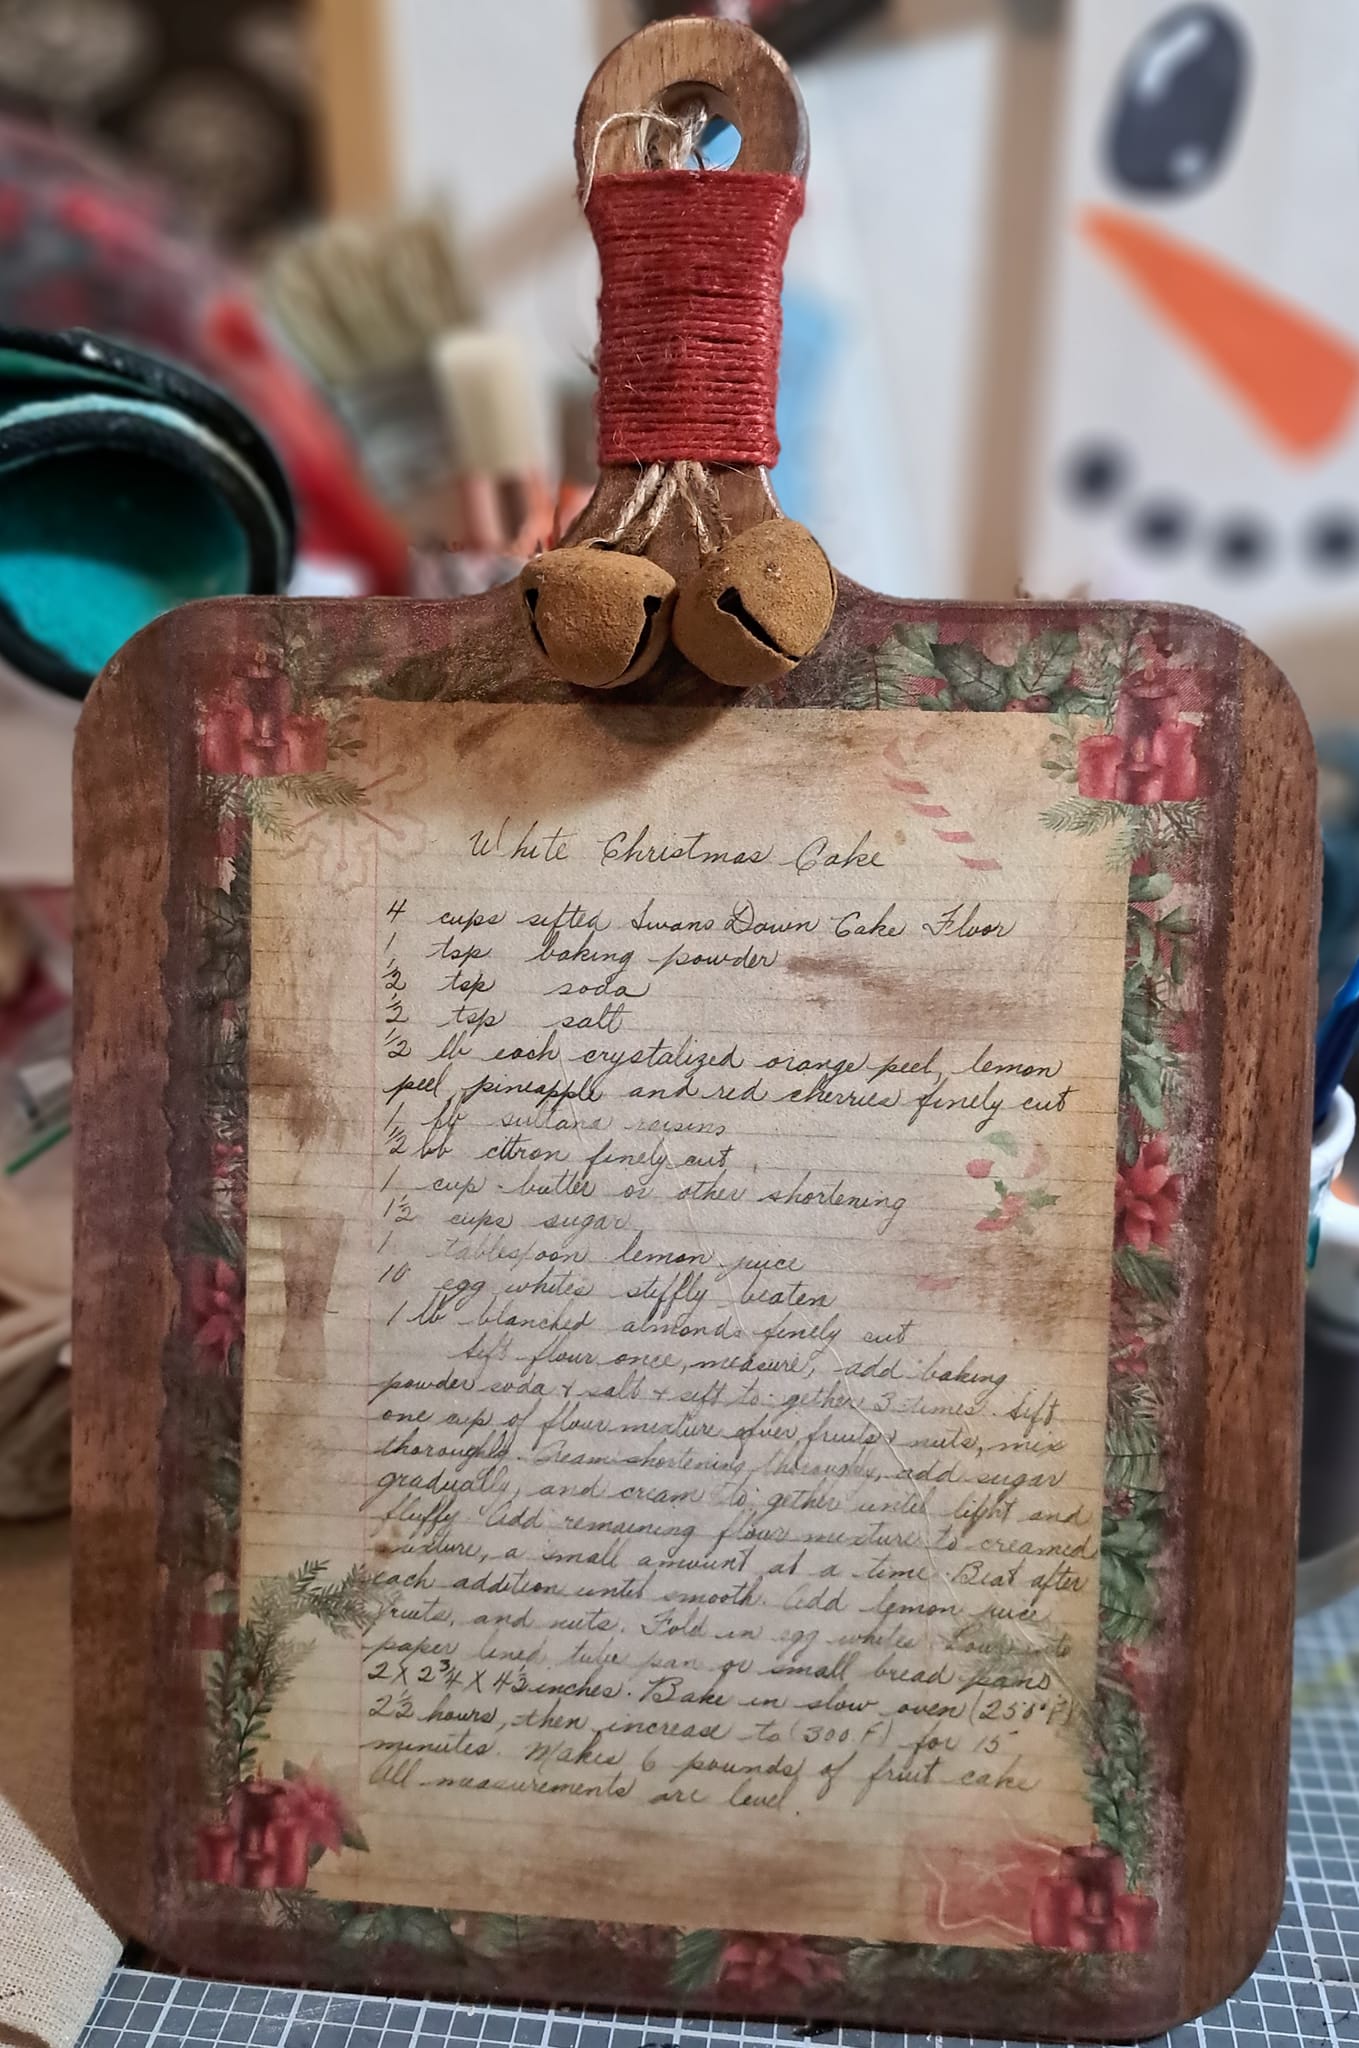 White Christmas Cake
4 cups sifted Swans Down Cake Floor
1 tsp baking powder
1/2 tsp soda
1/2 tsp salt
1/2 lb each crystalized orange peel, lemon
peel, pineapple and red cherries finely cut
1 lb sultana raisins
1/2 lb citron finely cut
1 cup butter or other shortening
1 1/2 cups sugar
1 tablespoon lemon juice
10 egg whites stiffly beaten
1 lb blanched almonds finely cut
Sift flour once, measure, add baking
powder soda + salt + sift to gether 3 times. Sift
one cup of flour mixture over fruits + nuts, mix
thoroughly. Cream shortening thoroughly, add sugar
gradually, and cream to gether until light and
fluffy. Add remaining flour mixture to creamed
mixture, a small amount at a time. Beat after
each addition until smooth. Add lemon juice
fruits, and nuts. Fold in egg whites. Pour into
paper lined tube pan or small bread pans
2 X 2 3/4 X 4 1/2 inches. Bake in slow oven (250°F)
2 1/2 hours, then increase to (300 F) for 15
minutes. Makes 6 pounds of fruit cake
All measurements are level.